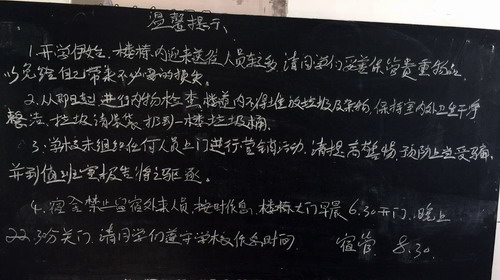 温馨提示
1.开学伊始,楼栋内迎来送往人员较多,请同学们妥善保管贵重物品,
以免给自己带来不必要的损失。
2.从即日起,进行内物检查,楼道内不得堆放垃圾及杂物,保持室内外卫生干净
整洁,垃圾请袋装,扔到一楼垃圾桶。
3.学校未组织任何人员上门进行营销活动,请提高警惕,预防上当受骗,
并到值班室报告将之驱逐。
4.宿舍禁止留宿外来人员,按时作息,楼栋大门早晨6.30开门,晚上
22.30分关门,请同学们遵守学校作息时间. 宿管 8.30.